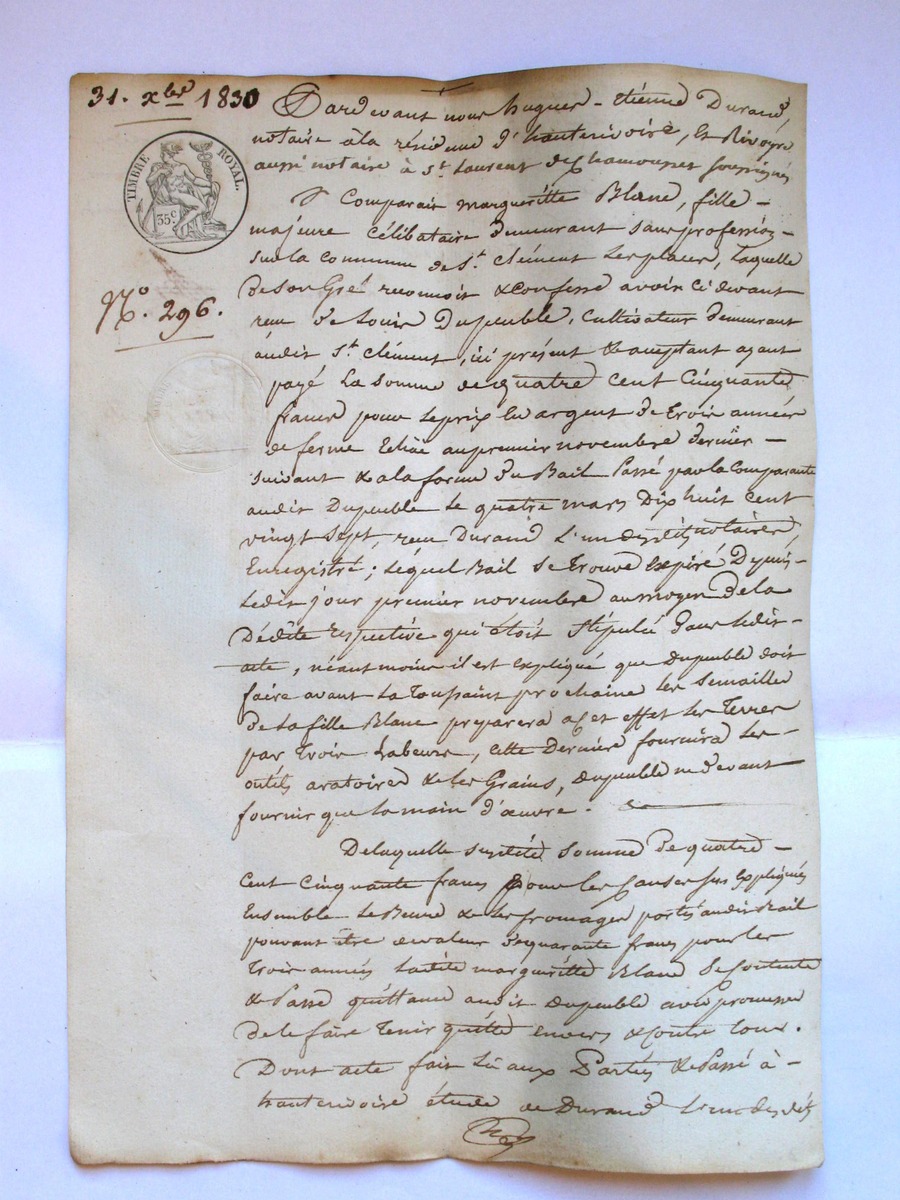 31. xbre 1830
TIMBRE ROYAL.
35 c
N.o 296.
Pardevant nous hugues-étienne Durand,
notaire à la résidence d'hauterivoire, Et Rivoyre
aussi notaire à St. Laurent de chamousset soussignés
Comparait margueritte Blanc, fille
majeure célibataire demeurant sans profession
sur la commune de St. Clément les places, Laquelle
de son Gré reconnoit & confesse avoir ci devant
recu de Louis Dupeuble, cultivateur demeurant
audit St. Clément, ici présent & acceptant ayant
payé La somme de quatre cent cinquante
francs pour le prix En argent de trois années
de ferme Echue au premier novembre dernier
suivant & a la forme du Bail Passé par la Comparante
audit Dupeuble Le quatre mars Dix huit cent
vingt Sept, recu Durand L'un desdits notaires
Enregistré; Lequel Bail se trouve Expiré Depuis
Ledit jour premier novembre au moyen de la
Dédite respective qui étoit stipulée dans Ledit
acte, néant moins il est Expliqué que Dupeuble doit
faire avant La Toussaint prochaine les semailles
de La fille Blanc preparera a cet effet les Terres
par trois Labeurs, cette Derniere fournira les
outils aratoires & les Grains, dupeuble ne devant
fournir que La main d'oeuvre.
De laquelle susdite somme de quatre
cent cinquante francs pour les causes sus Expliquées
Ensemble Le Beurre & les fromages portés audit Bail
pouvant être de valeur de quarante francs pour les
trois années Ladite margueritte Blanc Se Contente
& Passe quittance audit dupeuble avec promesse
de le faire Tenir quitte envers & contre tous.
Dont acte fait Lu aux Parties & Passé à
hauterivoire étude de Durand L'un desdits